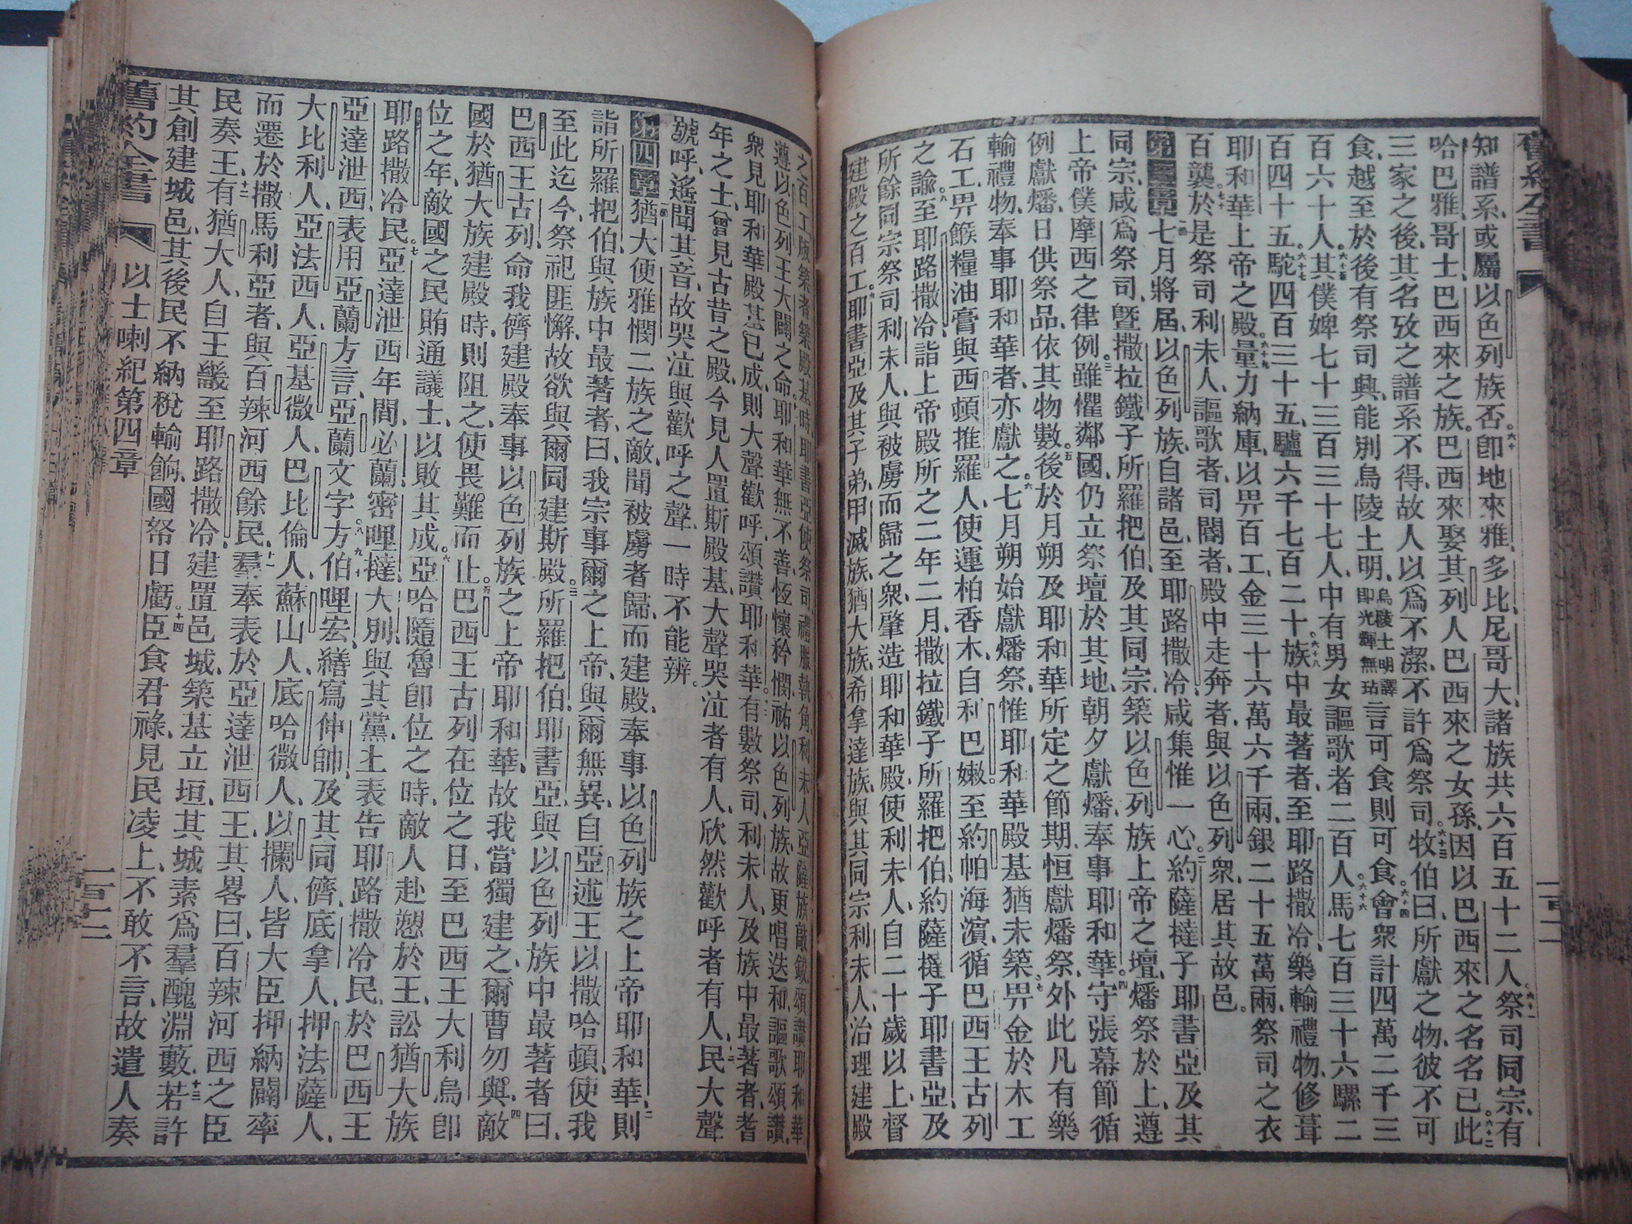 知譜系、或屬以色列族否、六十卽地來雅、多比尼哥大諸族、共六百五十二人、六十一祭司同宗、有
哈巴雅、哥士、巴西來之族、巴西來娶其列人巴西來之女孫、因以巴西來之名名己、六十二此
三家之後、其名攷之譜系不得、故人以爲不潔、不許爲祭司、六十三牧伯曰、所獻之物、彼不可
食、越至於後、有祭司興、能別烏陵土明、烏陵土明譯卽光輝無玷言可食則可食、六十四會衆計四萬二千三
百六十人、六十五其僕婢七千三百三十七人、中有男女謳歌者二百人、六十六馬七百三十六、騾二
百四十五、六十七駝四百三十五、驢六千七百二十、六十八族中最著者至耶路撒冷、樂輸禮物、修葺
耶和華上帝之殿、六十九量力納庫、以畀百工、金三十六萬六千兩、銀二十五萬兩、祭司之衣
百襲、七十於是祭司利未人、謳歌者、司閽者、殿中走奔者、與以色列衆、居其故邑。
第三章 一七月將屆、以色列族自諸邑至耶路撒冷、咸集惟一心、二約薩撻子耶書亞及其
同宗、咸爲祭司、曁撒拉鐵子所羅把伯、及其同宗、築以色列族上帝之壇、燔祭於上、遵
上帝僕摩西之律例、三雖懼鄰國、仍立祭壇於其地、朝夕獻燔、奉事耶和華、四守張幕節、循
例獻燔、日供祭品、依其物數、五後於月朔、及耶和華所定之節期、恒獻燔祭、外此凡有樂
輸禮物、奉事耶和華者、亦獻之、六七月朔始獻燔祭、惟耶和華殿基猶未築、七畀金於木工
石工、畀餱糧油膏與西頓推羅人、使運柏香木、自利巴嫩至約帕海濵、循巴西王古列
之諭、八至耶路撒冷、詣上帝殿所之二年二月、撒拉鐵子所羅把伯、約薩撻子耶書亞、及
所餘同宗祭司利未人、與被虜而歸之衆、肇造耶和華殿、使利未人自二十歲以上、督
建殿之百工、九耶書亞及其子弟、甲滅族、猶大族、希拿達族、與其同宗利未人、治理建殿
之百工、十版築者築殿基時、耶書亞使祭司禮服執角、利未人亞薩族敲鈸、頌讚耶和華、
遵以色列王大闢之命、十一耶和華無不善、恆懷矜憫、祐以色列族、故更唱迭和、謳歌頌讚、
衆見耶和華殿基已成、則大聲歡呼、頌讚耶和華、十二有數祭司、利未人、及族中最著者、耆
年之士、曾見古昔之殿、今見人置斯殿基、大聲哭泣者有人、欣然歡呼者有人、十三民大聲
號呼、遙聞其音、故哭泣與歡呼之聲、一時不能辨。
第四章 一猶大便雅憫二族之敵、聞被虜者歸、而建殿奉事以色列族之上帝耶和華、二則
詣所羅把伯、與族中最著者、曰、我宗事爾之上帝、與爾無異、自亞述王以撒哈頓、使我
至此、迄今祭祀匪懈、故欲與爾同建斯殿、三所羅把伯、耶書亞、與以色列族中最著者曰、
巴西王古列命我儕建殿、奉事以色列族之上帝耶和華、故我當獨建之、爾曹勿與、四敵
國於猶大族建殿時、則阻之、使畏難而止、五巴西王古列在位之日、至巴西王大利烏卽
位之年、敵國之民賄通議士、以敗其成、六亞哈隨魯卽位之時、敵人赴愬於王、訟猶大族
耶路撒冷民、七亞達泄西年間、必蘭、密哩撻、大別、與其黨、上表告耶路撒冷民、於巴西王
亞達泄西、表用亞蘭方言、亞蘭文字、八九方伯哩宏、繕寫伸帥、及其同儕、底拿人、押法薩人、
大比利人、亞法西人、亞基微人、巴比倫人、蘇山人、底哈微人、以攔人、十皆大臣押納闢率
而遷於撒馬利亞者、與百辣河西餘民、十一羣奉表於亞達泄西王、其畧曰、百辣河西之臣
民奏王、十二有猶大人、自王畿至耶路撒冷、建置邑城、築基立垣、其城素爲羣醜淵藪、十三若許
其創建城邑、其後民不納稅輸餉、國帑日虧、十四臣食君祿、見民凌上、不敢不言、故遣人奏
舊約全書 以士喇紀第四章